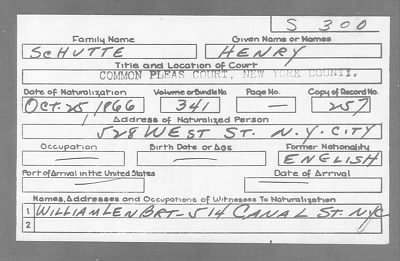 S 300
Family Name Given Name or Names
SCHUTTE HENRY
Title and Location of Court
COMMON PLEAS COURT, NEW YORK COUNTY.
Date of Naturalization Volume or Bundle No. Page No. Copy of Record No.
OCT. 25, 1866 341 — 257
Address of Naturalized Person
528 WEST ST. N.Y. CITY
Occupation Birth Date or Age Former Nationality
— — ENGLISH
Port of Arrival in the United States Date of Arrival
— —
Names, Addresses and Occupations of Witnesses To Naturalization
1 WILLIAM LENBRT - 514 CANAL ST. NYC
2